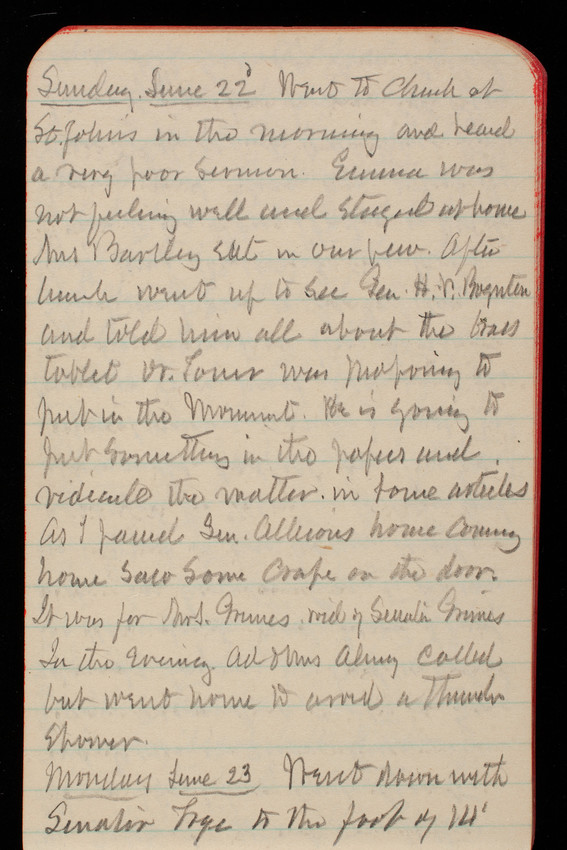 Sunday. June 22d Went to Church at
St. Johns in the morning and heard
a very poor sermon. Emma was
not feeling well and stayed at home
Mrs Bartley sat in our pew. After
lunch went up to see Gen. H. V. Boynton
and told him all about the brass
tablet Dr. Toner was proposing to
put in the Monument. He is going to
put something in the papers and
ridicule the matter in some articles
As I passed Gen. home coming
home saw some Crape on the door.
It was for Mrs. Grimes. wid of Senator Grimes
In the Evening. Ad Almy called
but went home to avoid a thunder
shower.
Monday June 23 Went down with
Senator to the foot of